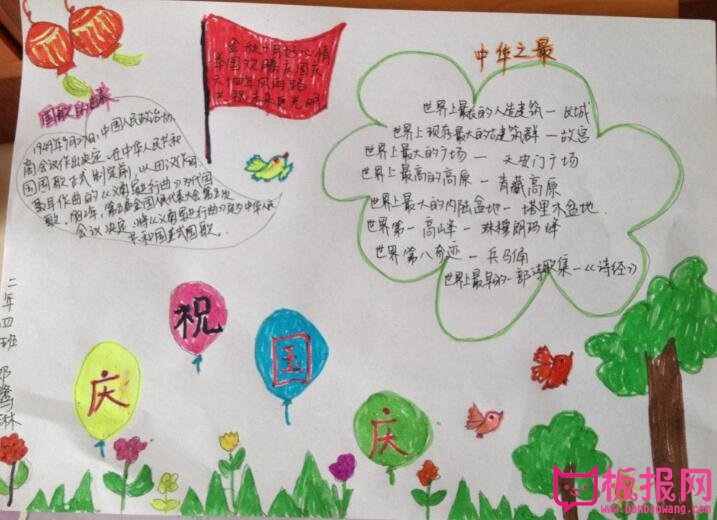 金秋十月好心情
举国欢腾庆国庆
六十四年风雨路
共祝未来更光明
国歌的由来
1949年9月27日,中国人民政治协
商会议作出决定,在中华人民共和
国国歌正式制定前,以田汉作词,
聂耳作曲的《义勇军进行曲》为代国
歌。1982年,第五届全国人民代表大会第五次
会议决定:将《义勇军进行曲》定为中华人民
共和国正式国歌。
中华之最
世界上最长的人造建筑—长城
世界上现存最大的古建筑群—故宫
世界上最大的广场—天安门广场
世界上最高的高原—青藏高原
世界上最大的内陆盆地—塔里木盆地
世界第一高峰—珠穆朗玛峰
世界第八奇迹—兵马俑
世界上最早的一部诗歌集—《诗经》
二年四班
琳
庆
祝
国
庆
板报网
www.banbaowang.com